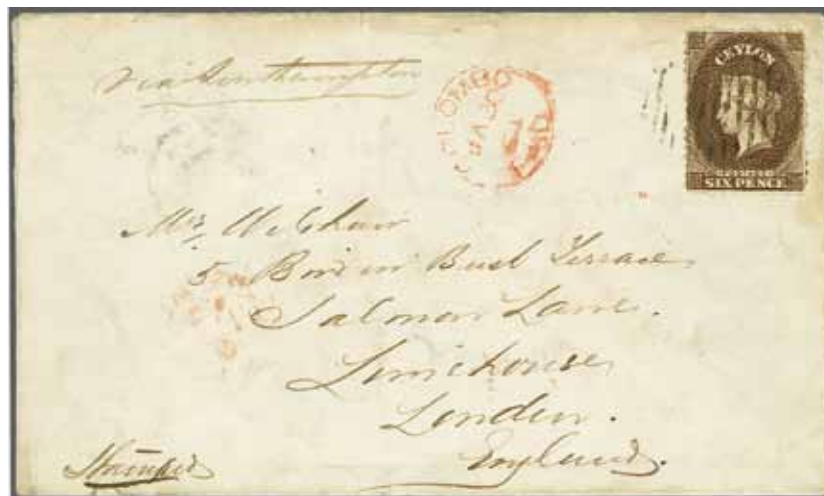 via Southampton
COLOMBO
PAID
CEYLON
POSTAGE
SIX PENCE
Mrs Wilshaw
5 Bird in Bush Terrace
Salmon Lane.
Limehouse
London.
England.
Stamped